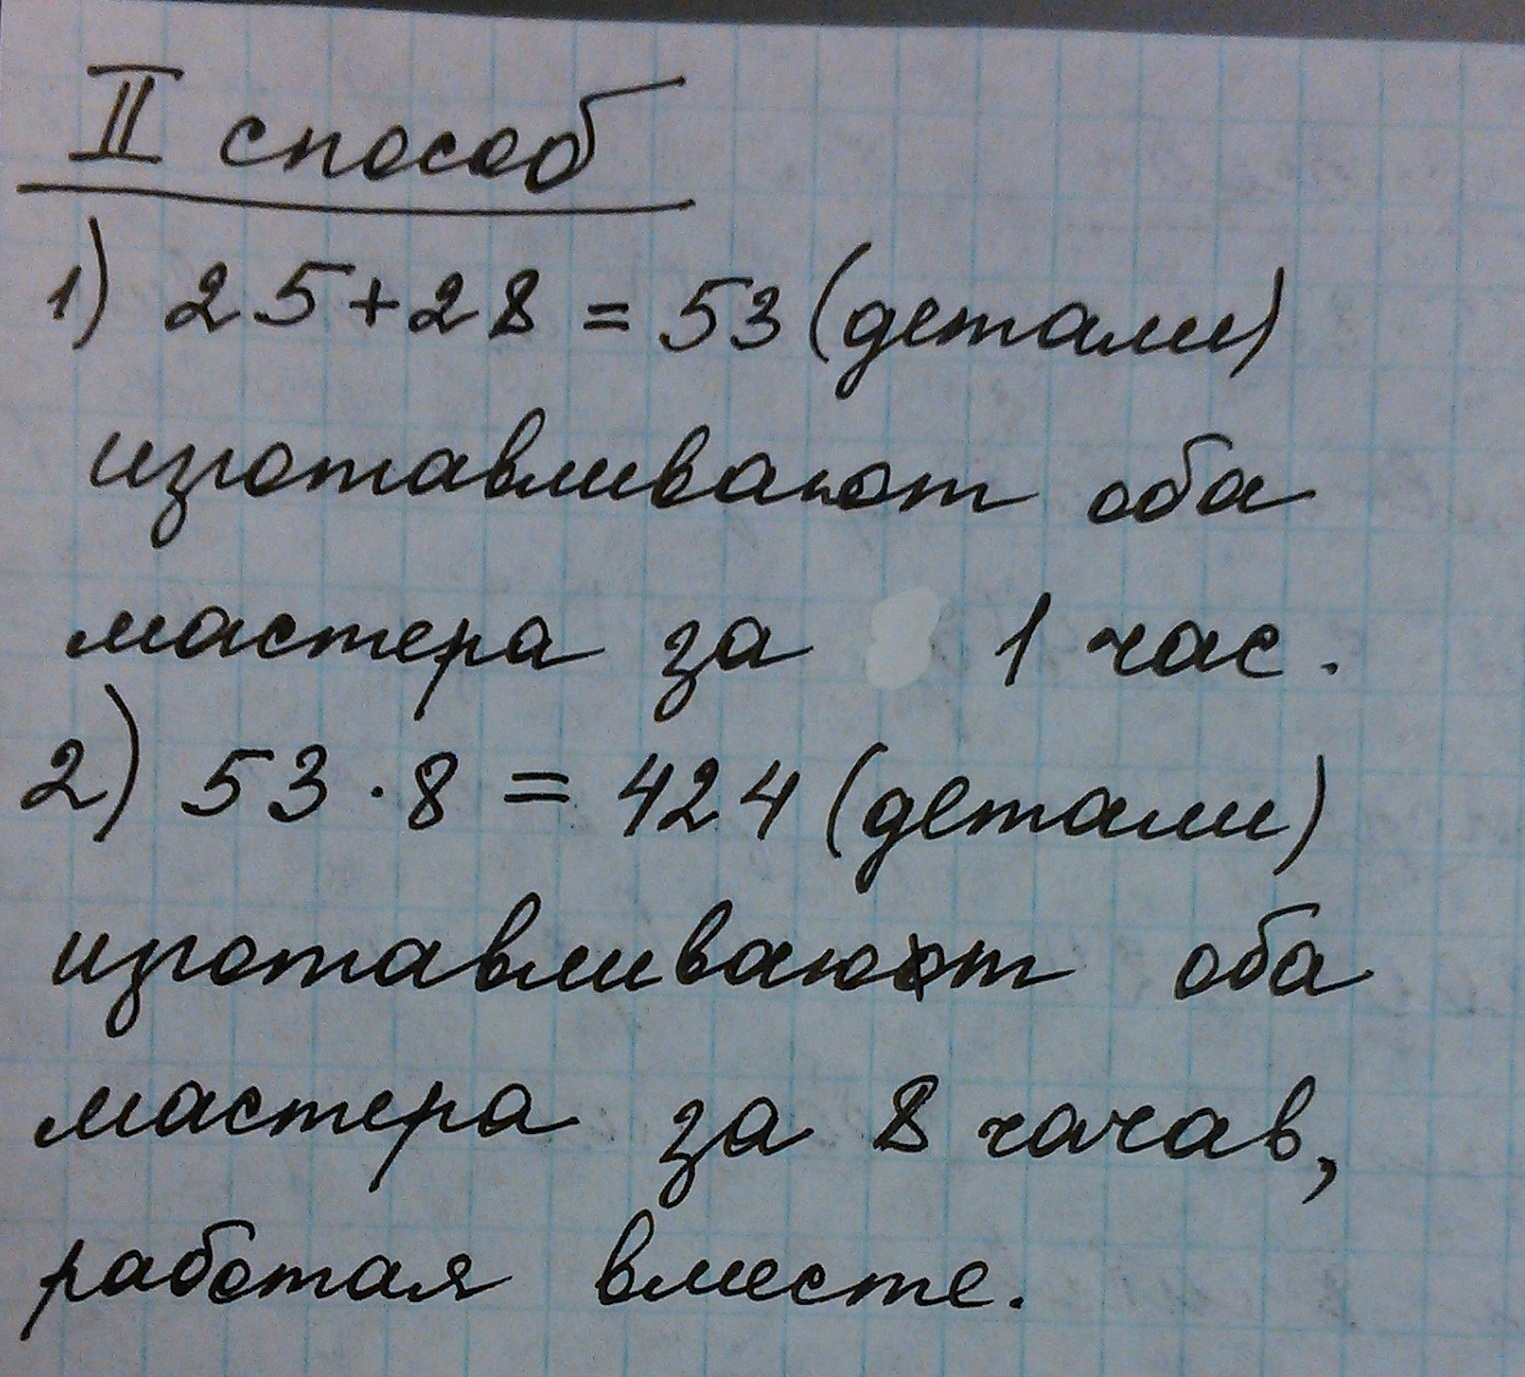 II способ
1) 25+28 = 53 (детали)
изготавливают оба
мастера за 1 час.
2) 53 · 8 = 424 (детали)
изготавливают оба
мастера за 8 чачав,
работая вместе.